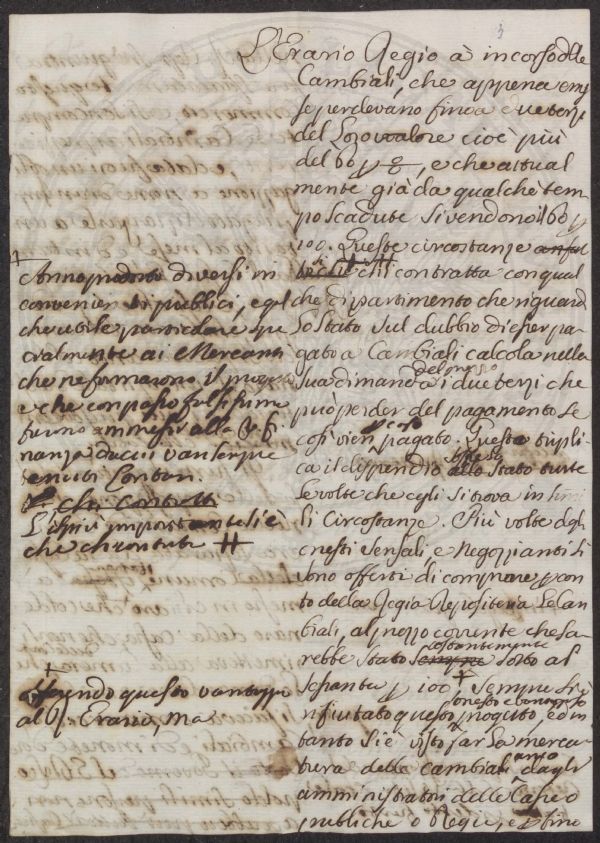 L'Erario Regio à in corso delle
Cambiali, che appena
si perdevano fino a due terzi
del Loro valore cioè più
del 60 p %, e che attual
mente già da qualche tem
po scadute si vendono il 60 p
100. Queste circostanze
che chi contratta con qual
che dipartimento che riguard
lo Stato sul dubbio di esser pa
gato a Cambiali calcola nella
sua dimanda del prezzo i due terzi che
può perder del pagamento se
così vien pagato. Questo tripli
ca il dispendio allo Stato tutte
le volte che egli si trova in simi
li Circostanze. Più volte dagli
onesti Sensali, e Negozianti si
sono offerti di comprare p con
to della Regia Le Cam
biali, al prezzo corrente che sa
rebbe stato costantemente sotto al
sessanta p 100, + sempre si è
rifiutato questo onesto e vantaggioso progetto, ed in
tanto si è visto far La merca
tura delle cambiali dagli
amministratori delle Casse o
publiche o Regie, e p fino
+
Anno prodotto diversi in
convenienti publici, e qual
che utile particolare spe
cialmente ai Mercanti
che ne formarono il progetto
e che con passo
furno ammessi alla
nanza da cui van sempre
tenuti Lontan.
che contratt
L' più importante si è
che chi contratta #
+
offrendo questo vantaggio
al R. Erario, ma